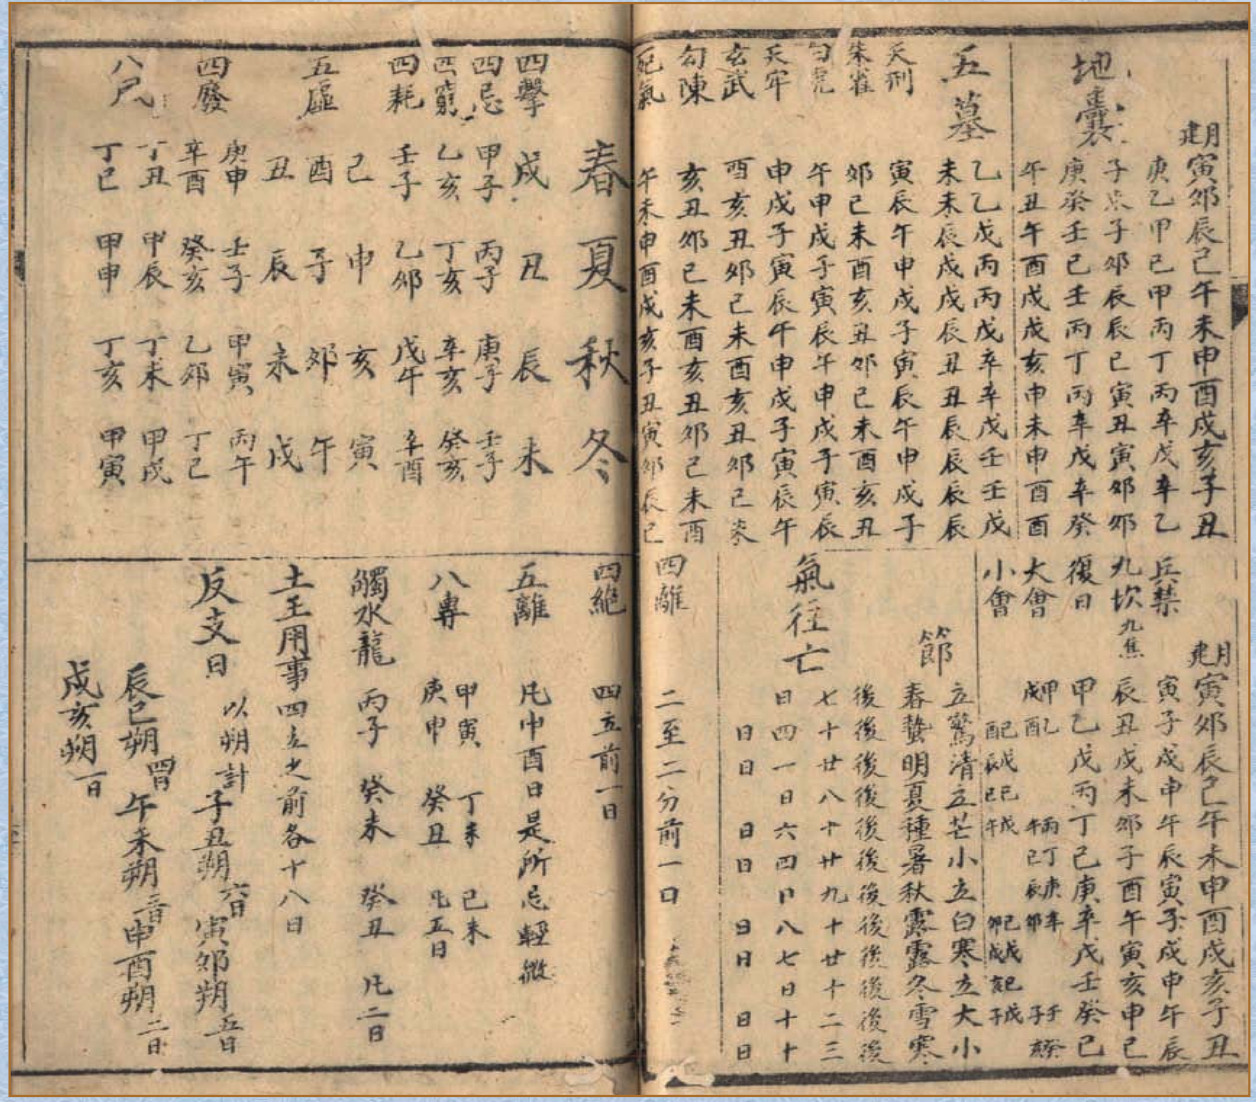 月建 寅卯辰巳午未申酉戌亥子丑
地囊 庚乙甲己甲丙丁丙辛戊辛乙
子未子卯辰辰巳寅丑寅卯卯
庚癸壬己壬丙丁丙辛戊辛癸
午丑午酉戌戌亥申未申酉酉
五墓 乙乙戊丙丙戊辛辛戊壬壬戊
未未辰戌戌辰丑丑辰辰辰辰
天刑 寅辰午申戌子寅辰午申戌子
朱雀 卯巳未酉亥丑卯巳未酉亥丑
白虎 午申戌子寅辰午申戌子寅辰
天牢 申戌子寅辰午申戌子寅辰午
玄武 酉亥丑卯巳未酉亥丑卯巳未
勾陳 亥丑卯巳未酉亥丑卯巳未酉
死氣 午未申酉戌亥子丑寅卯辰巳
月建 寅卯辰巳午未申酉戌亥子丑
兵禁 寅子戌申午辰寅子戌申午辰
九坎 九焦 辰丑戌未卯子酉午寅亥申巳
復日 甲乙戊丙丁己庚辛戊壬癸己
大會 甲戌 乙酉 丙午 丁巳 庚辰 辛卯 壬子 癸亥
小會 己卯 戊辰 己巳 戊午 己酉 戊戌 己亥 戊子
節 立驚清立芒小立白寒立大小
春蟄明夏種暑秋露露冬雪寒
氣往亡 後後後後後後後後後後後後
七十廿八十廿九十廿十二三
日四一日六四日八七日十十
日日 日日 日日 日日
四離 二至二分前一日
春 夏 秋 冬
四擊 戌 丑 辰 未
四忌 甲子 丙子 庚子 壬子
四窮 乙亥 丁亥 辛亥 癸亥
四耗 壬子 乙卯 戊午 辛酉
己 申 亥 寅
五虛 酉 子 卯 午
丑 辰 未 戌
四廢 庚申 壬子 甲寅 丙午
辛酉 癸亥 乙卯 丁巳
八風 丁丑 甲辰 丁未 甲戌
丁巳 甲申 丁亥 甲寅
四絕 四立前一日
五離 凡申酉日是所忌輕微
八專 甲寅 丁未 己未
庚申 癸丑 凡五日
觸水龍 丙子 癸未 癸丑 凡三日
土王用事四立之前各十八日
反支日 以朔計 子丑朔六日 寅卯朔五日
辰巳朔四日 午未朔三日 申酉朔二日
戌亥朔一日